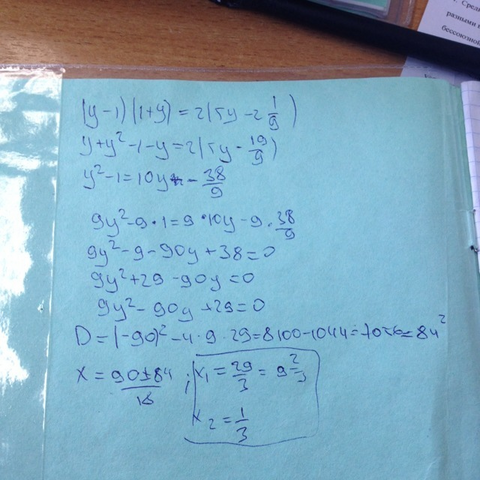 (y-1)(1+y)=2(5y-2 1/9)
y+y²-1-y=2(5y-19/9)
y²-1=10y-38/9
9y²-9·1=9·10y-9·38/9
9y²-9-90y+38=0
9y²+29-90y=0
9y²-90y+29=0
D=(-90)²-4·9·29=8100-1044=7056=84²
x=90±84/18; x₁=29/3=9 2/3
x₂=1/3